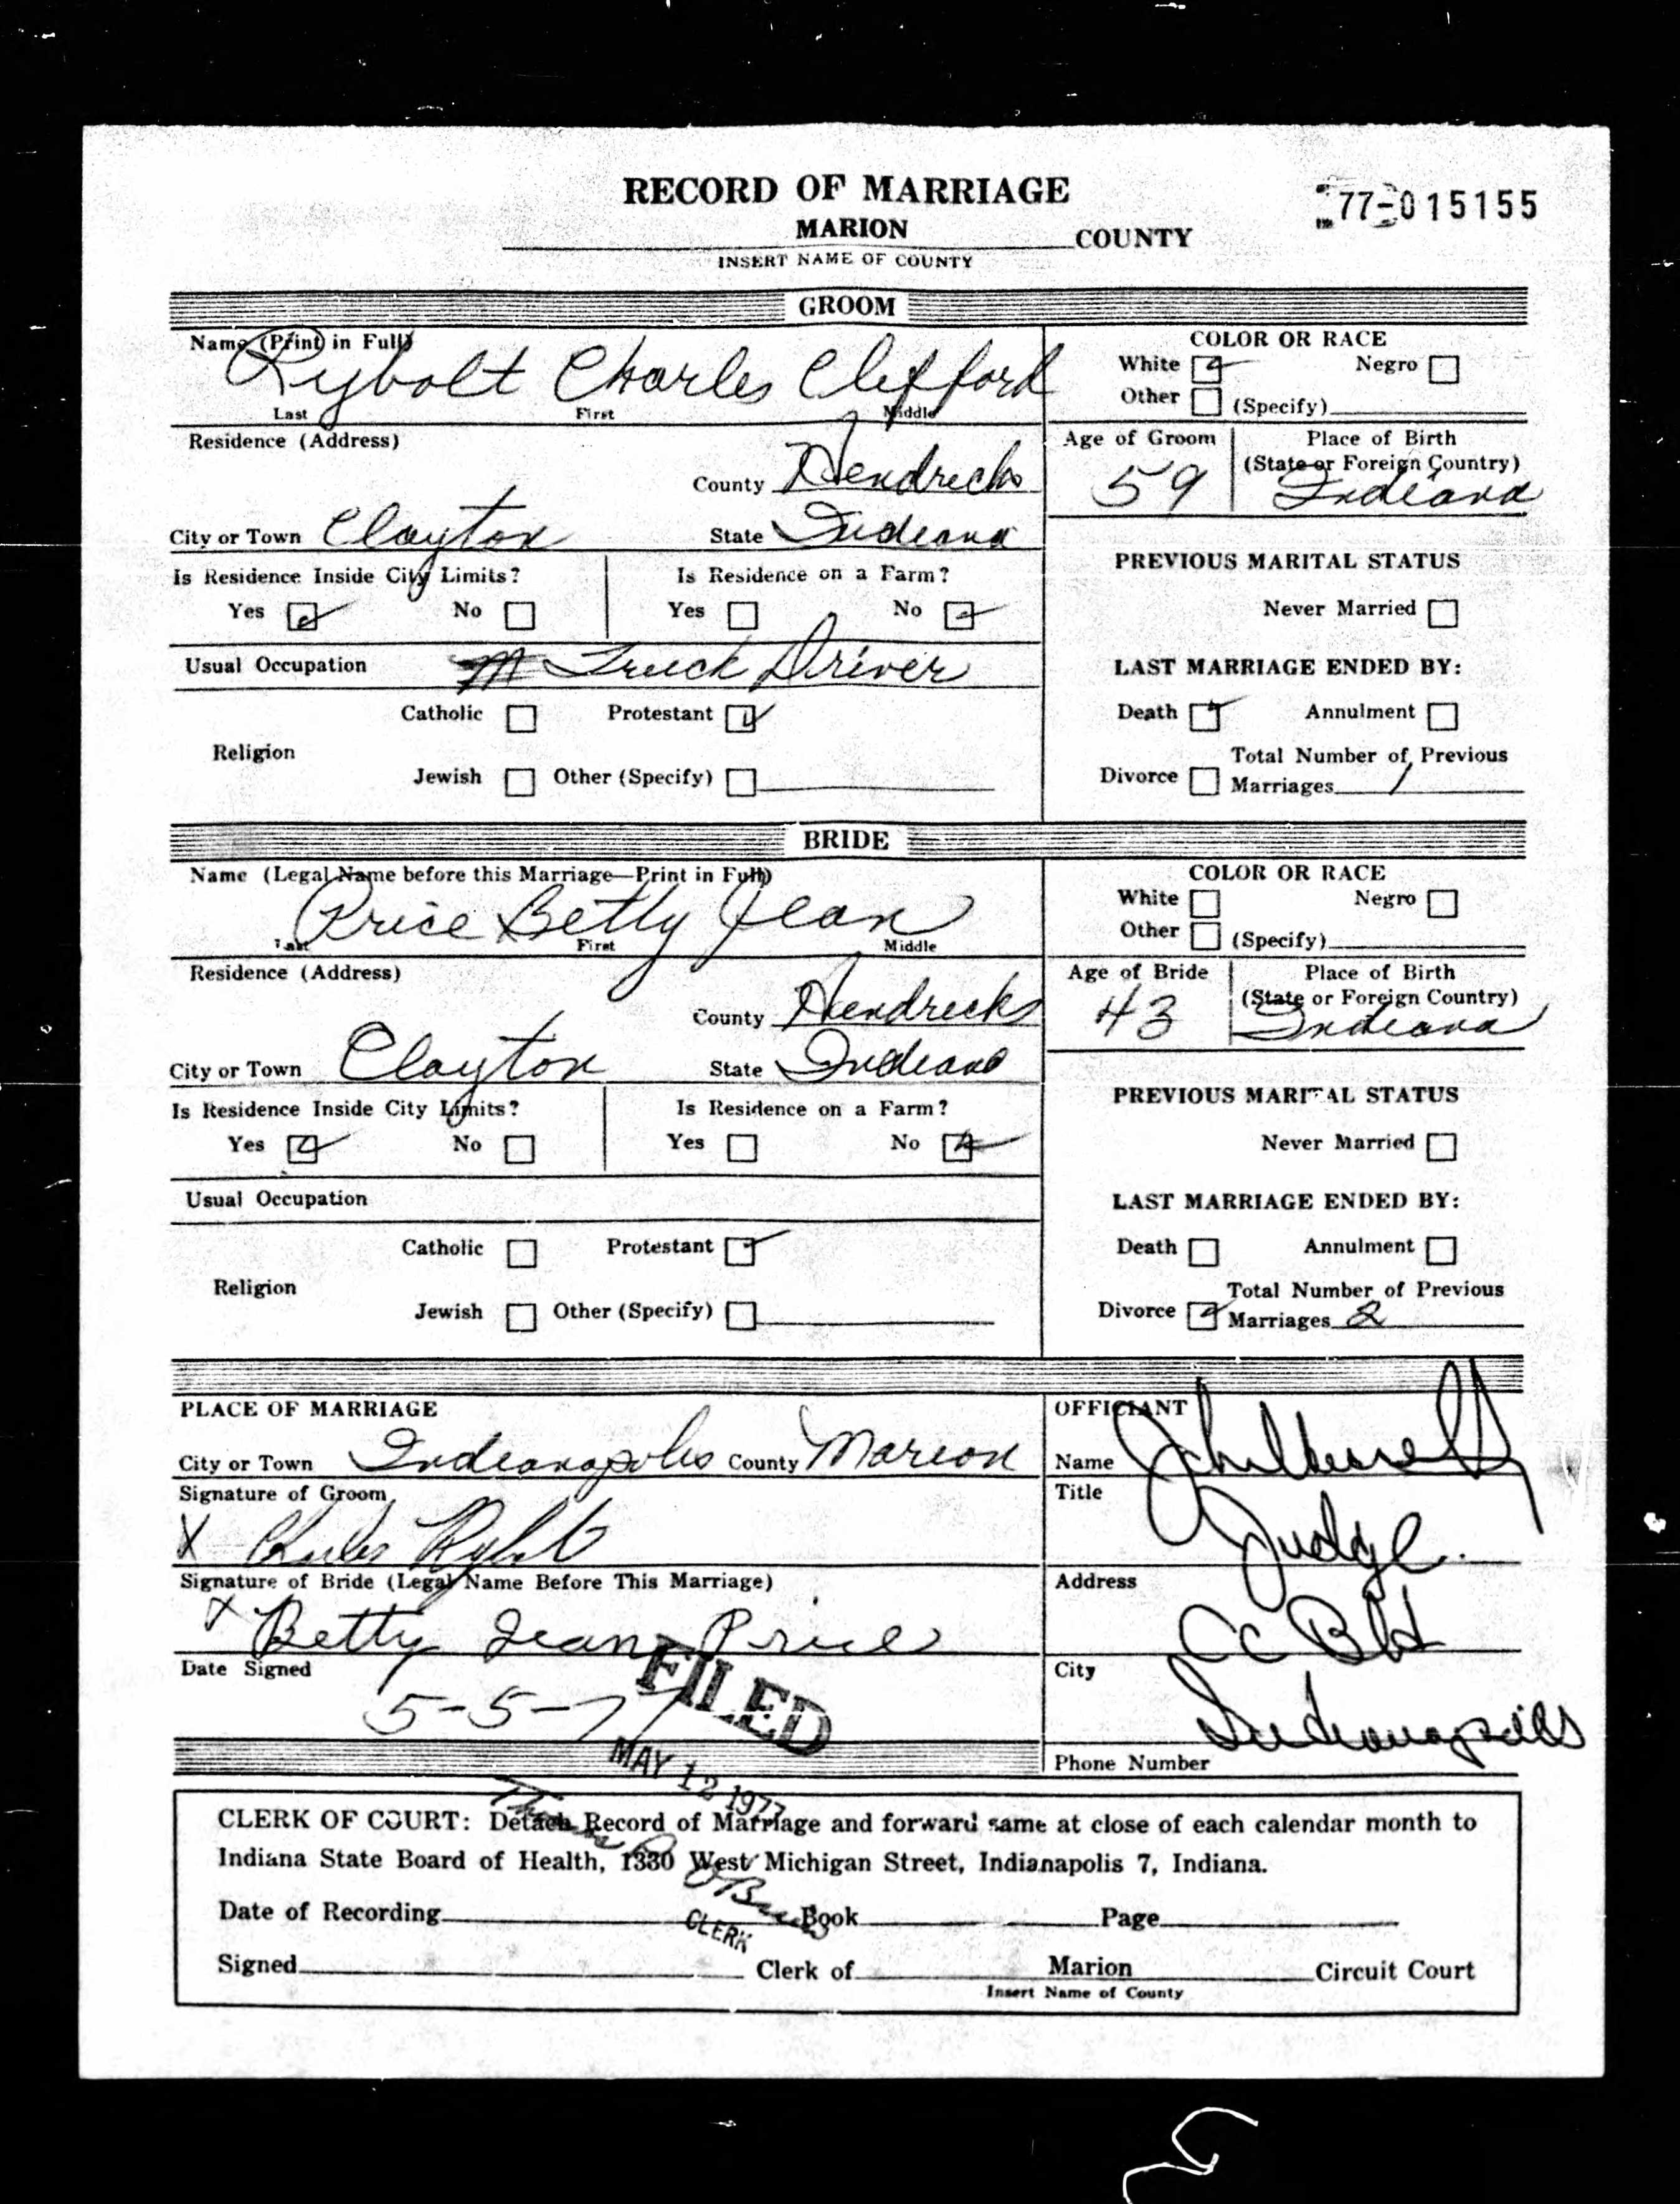 RECORD OF MARRIAGE
77-015155
MARION COUNTY
INSERT NAME OF COUNTY
GROOM
Name (Print in Full)
Rybolt Charles Clifford
Last First Middle
COLOR OR RACE
White Negro
Other (Specify)
Residence (Address)
County Hendricks
City or Town Clayton State Indiana
Age of Groom
59
Place of Birth
(State or Foreign Country)
Indiana
Is Residence Inside City Limits? Is Residence on a Farm?
Yes No Yes No
PREVIOUS MARITAL STATUS
Never Married
Usual Occupation Truck Driver
LAST MARRIAGE ENDED BY:
Catholic Protestant
Religion
Jewish Other (Specify)
Death Annulment
Total Number of Previous
Divorce Marriages 1
BRIDE
Name (Legal Name before this Marriage—Print in Full)
Price Betty Jean
Last First Middle
COLOR OR RACE
White Negro
Other (Specify)
Residence (Address)
County Hendricks
City or Town Clayton State Indiana
Age of Bride
43
Place of Birth
(State or Foreign Country)
Indiana
Is Residence Inside City Limits? Is Residence on a Farm?
Yes No Yes No
PREVIOUS MARITAL STATUS
Never Married
Usual Occupation
LAST MARRIAGE ENDED BY:
Catholic Protestant
Religion
Jewish Other (Specify)
Death Annulment
Total Number of Previous
Divorce Marriages 2
PLACE OF MARRIAGE
City or Town Indianapolis County Marion
Signature of Groom
X Charles Rybolt
Signature of Bride (Legal Name Before This Marriage)
X Betty Jean Price
Date Signed
5-5-77
OFFICIANT
Name
Title
Judge
Address
CC Bld
City
Indianapolis
Phone Number
FILED
MAY 12 1977
CLERK
CLERK OF COURT: Detach Record of Marriage and forward same at close of each calendar month to
Indiana State Board of Health, 1330 West Michigan Street, Indianapolis 7, Indiana.
Date of Recording Book Page
Signed Clerk of Marion Circuit Court
Insert Name of County